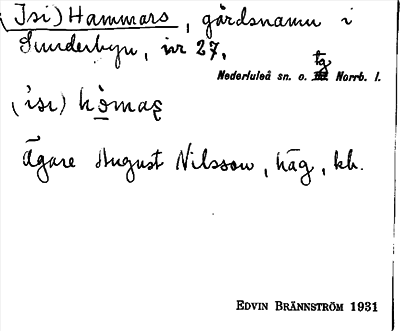 (Isi) Hammars, gårdsnamn i
Sunderbyn, nr 27.
tg
Nederluleå sn. o. Norrb. l.
(isı)
ägare August Nilsson, häg, kh.
EDVIN BRÄNNSTRÖM 1931